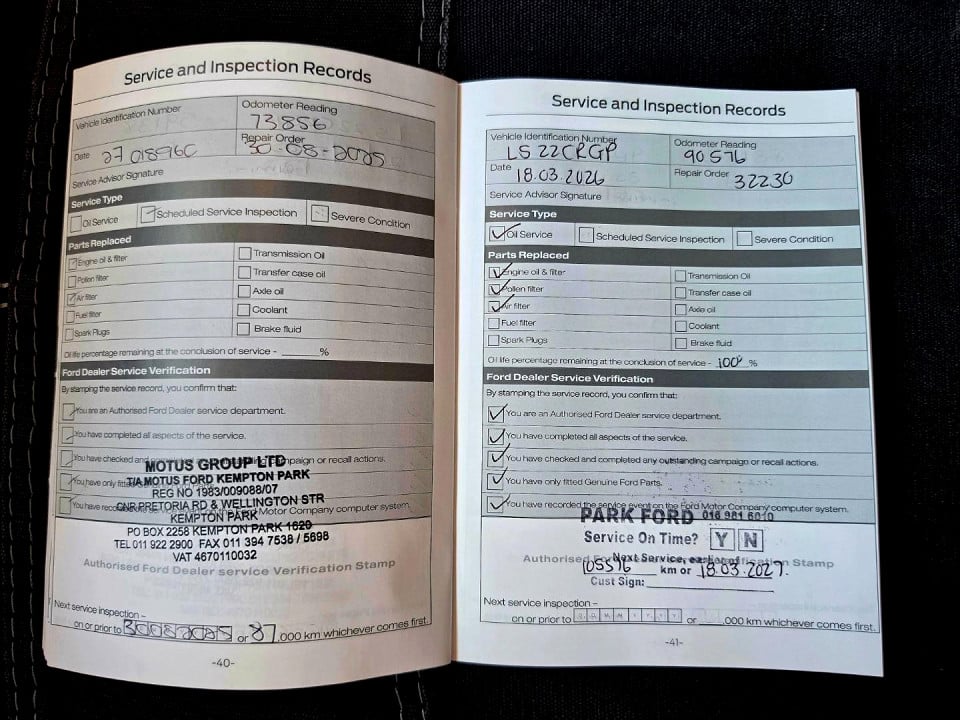 Service and Inspection Records
Vehicle Identification Number
Odometer Reading
73856
Date 27018960
Repair Order
30-08-2025
Service Advisor Signature
Service Type
Oil Service
Scheduled Service Inspection
Severe Condition
Parts Replaced
Engine oil & filter
Transmission Oil
Pollen filter
Transfer case oil
Air filter
Axle oil
Fuel filter
Coolant
Spark Plugs
Brake fluid
Oil life percentage remaining at the conclusion of service - %
Ford Dealer Service Verification
By stamping the service record, you confirm that:
You are an Authorised Ford Dealer service department.
You have completed all aspects of the service.
You have checked and campaign or recall actions.
You have only fitted
You have Motor Company computer system.
MOTUS GROUP LTD
T/A MOTUS FORD KEMPTON PARK
REG NO 1983/009088/07
CNR PRETORIA RD & WELLINGTON STR
KEMPTON PARK
PO BOX 2258 KEMPTON PARK 1620
TEL 011 922 2900 FAX 011 394 7538 / 5698
VAT 4670110032
Authorised Ford Dealer service Verification Stamp
Next service inspection –
on or prior to 30082025 or 87,000 km whichever comes first.
-40-
Service and Inspection Records
Vehicle Identification Number
LS 22CRGP
Odometer Reading
90576
Date 18.03.2026
Repair Order 32230
Service Advisor Signature
Service Type
Oil Service
Scheduled Service Inspection
Severe Condition
Parts Replaced
Engine oil & filter
Transmission Oil
Pollen filter
Transfer case oil
Air filter
Axle oil
Fuel filter
Coolant
Spark Plugs
Brake fluid
Oil life percentage remaining at the conclusion of service - 100 %
Ford Dealer Service Verification
By stamping the service record, you confirm that:
You are an Authorised Ford Dealer service department.
You have completed all aspects of the service.
You have checked and completed any outstanding campaign or recall actions.
You have only fitted Genuine Ford Parts.
You have recorded the service event on the Ford Motor Company computer system.
PARK FORD 016 981 6010
Service On Time? Y N
Authorised Verification Stamp
Next Service, earlier of
105576 km or 18.03.2027.
Cust Sign:
Next service inspection –
on or prior to D D M M Y Y Y Y or ,000 km whichever comes first.
-41-